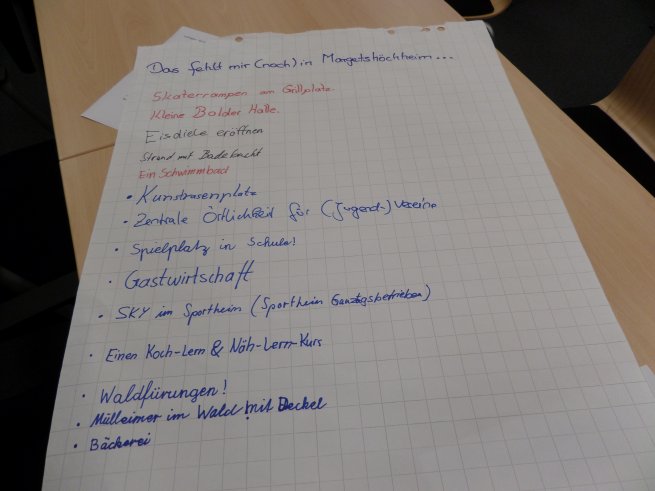 Das fehlt mir (noch) in Margetshöchheim...
Skaterrampen am Grillplatz.
Kleine Balder Halle.
Eisdiele eröffnen
Strand mit Badebucht
Ein Schwimmbad
• Kunstrasenplatz
• Zentrale Örtlichkeit für (Jugend-) Vereine
• Spielplatz in Schule!
• Gastwirtschaft
• SKY im Sportheim (Sportheim Ganztagsbetrieben)
• Einen Koch-Lern & Näh-Lern-Kurs
• Waldfürungen!
• Mülleimer im Wald mit Deckel
• Bäckerei